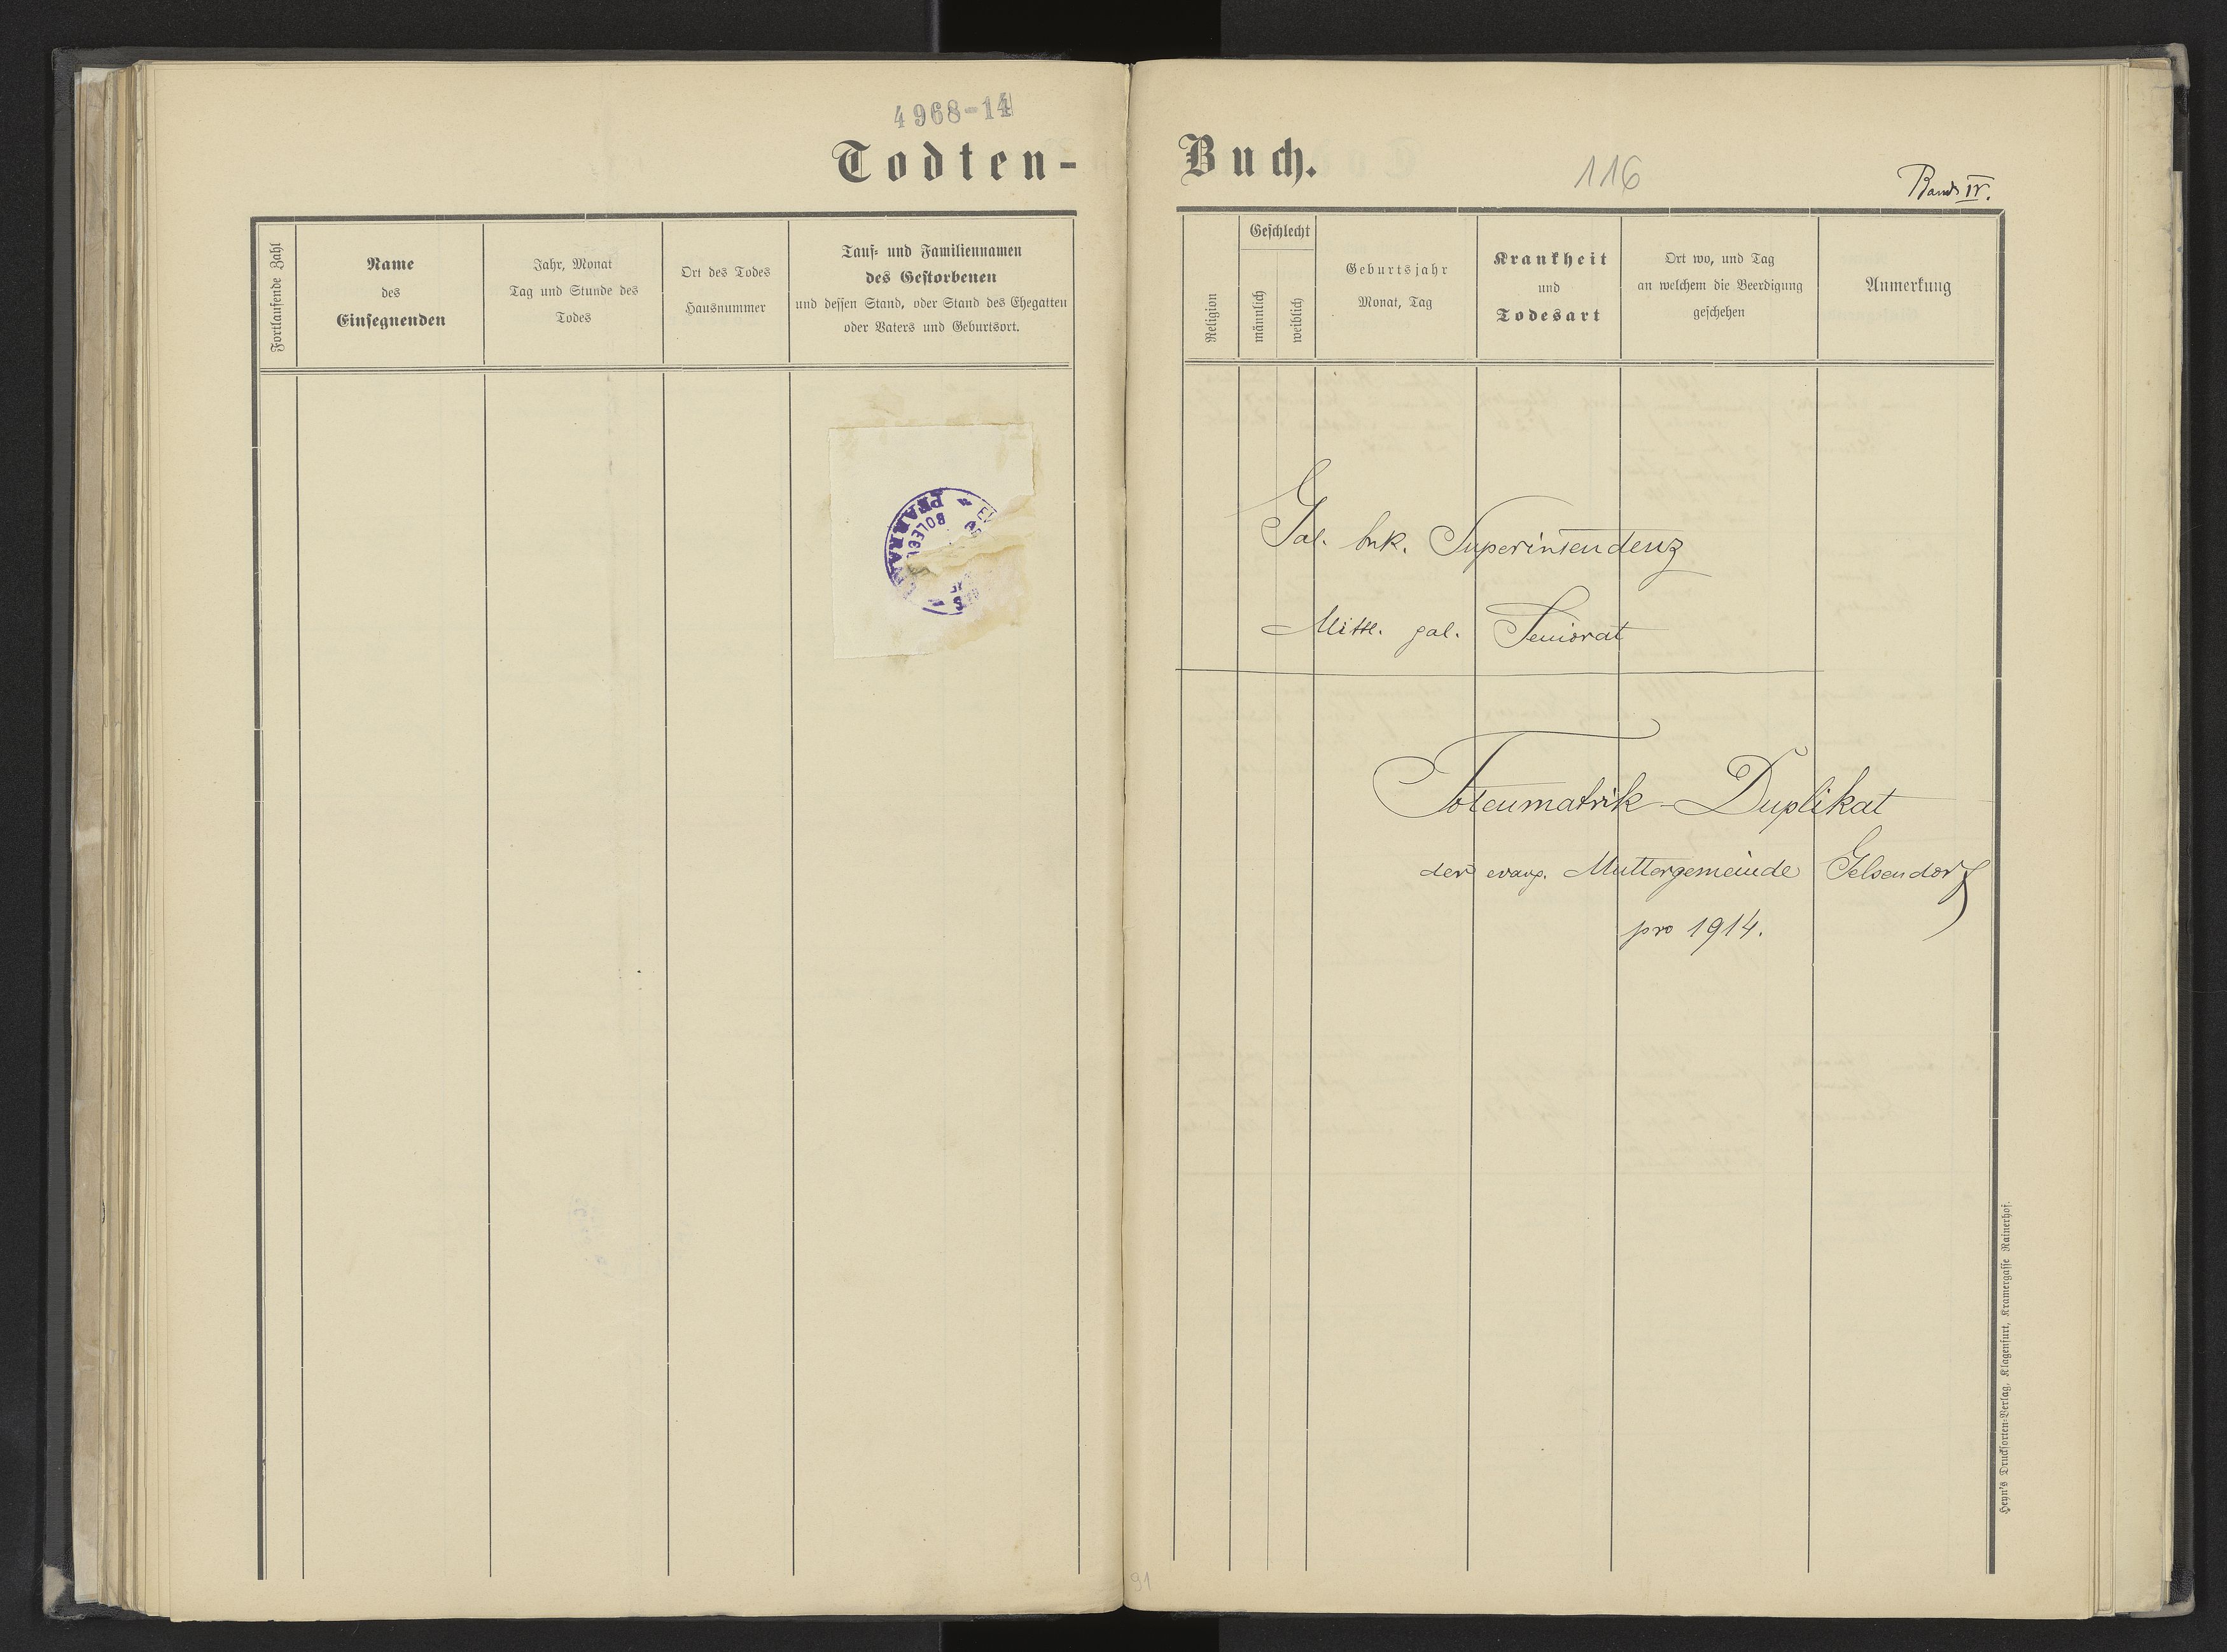 4968-14
Todten-
Fortlaufende Zahl
Name
des
Einsegnenden
Jahr, Monat
Tag und Stunde des
Todes
Ort des Todes
Hausnummer
Tauf- und Familiennamen
des Gestorbenen
und dessen Stand, oder Stand des Ehegatten
oder Vaters und Geburtsort.
Buch.
116
Band IV.
Religion
Geschlecht
männlich
weiblich
Geburtsjahr
Monat, Tag
Krankheit
und
Todesart
Ort wo, und Tag
an welchem die Beerdigung
geschehen
Anmerkung
Gal. buk. Superintendenz
Mittl. gal. Seniorat
Totenmatrik-Duplikat
der evang. Muttergemeinde Gelsendorf
pro 1914.
Heyn's Drucksorten-Verlag, Klagenfurt, Kramergasse Rainerhof.
91